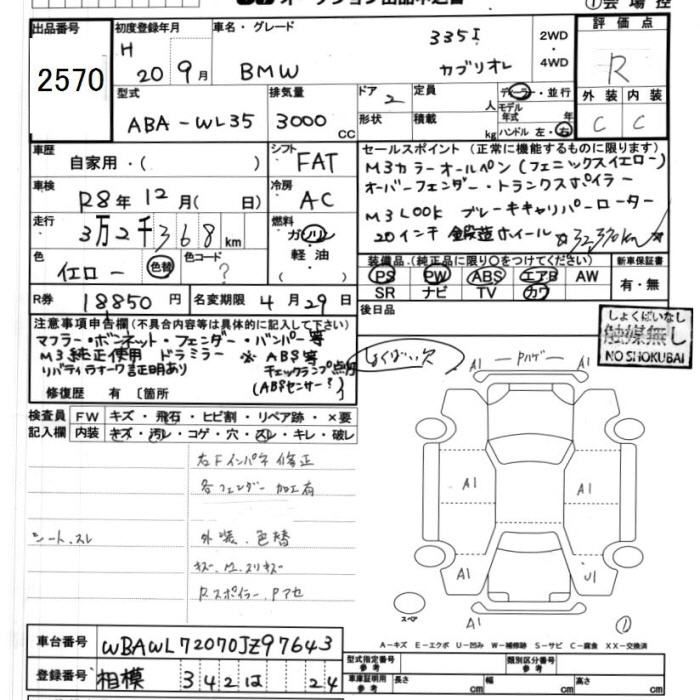 オークション出品申込書
①会場控
出品番号
2570
初度登録年月
H 20 9月
車名・グレード
BMW
335I
カブリオレ
2WD
・
4WD
評価点
R
外装 内装
C C
型式
ABA-WL35
排気量
3000 CC
ドア
2
定員
人
形状
積載
kg
ディーラー・並行
モデル
年式 年
ハンドル 左・右
車歴
自家用・( )
シフト
FAT
車検
R8年12月( 日)
冷房
AC
走行
3万2千368km
燃料
ガソリン
軽油
( )
色
イエロー 色替
色コード
?
R券
18850円
名変期限 4月29日
セールスポイント(正常に機能するものに限ります)
M3カラーオールペン(フェニックスイエロー)
オーバーフェンダー・トランクスポイラー
M3LOOK ブレーキキャリパーローター
20インチ 鍛造ホイール ☆32,370km☆
装備品(純正品に限り○をつけてください)
PS PW ABS エアB AW
SR ナビ TV カワ
新車保証書
有・無
後日品
しょくばいなし
触媒無し
NO SHOKUBAI
注意事項申告欄(不具合内容等は具体的に記入して下さい)
マフラー・ボンネット・フェンダー・バンパー等
M3純正使用 ドラミラー ※ABS等
チェックランプ点灯
(ABSセンサー?)
修復歴 有〔箇所
しょくばい欠
検査員
記入欄
FW キズ・飛石・ヒビ割・リペア跡・×要
内装 キズ・汚レ・コゲ・穴・スレ・キレ・破レ
右Fインパネ修正
各フェンダー加工有
シート、スレ
外装、色替
Rスポイラー、Pアセ
A1
A1
A1 A1
A1 U1
A1
スペア
①
A-キズ E-エクボ U-凹み W-補修跡 S-サビ C-腐食 XX-交換済
車台番号
WBAWL72070JZ97643
登録番号
相模 342は 24
型式指定番号
参考
類別区分番号
参考
車庫証明用
参考
長さ cm
幅 cm
高さ cm